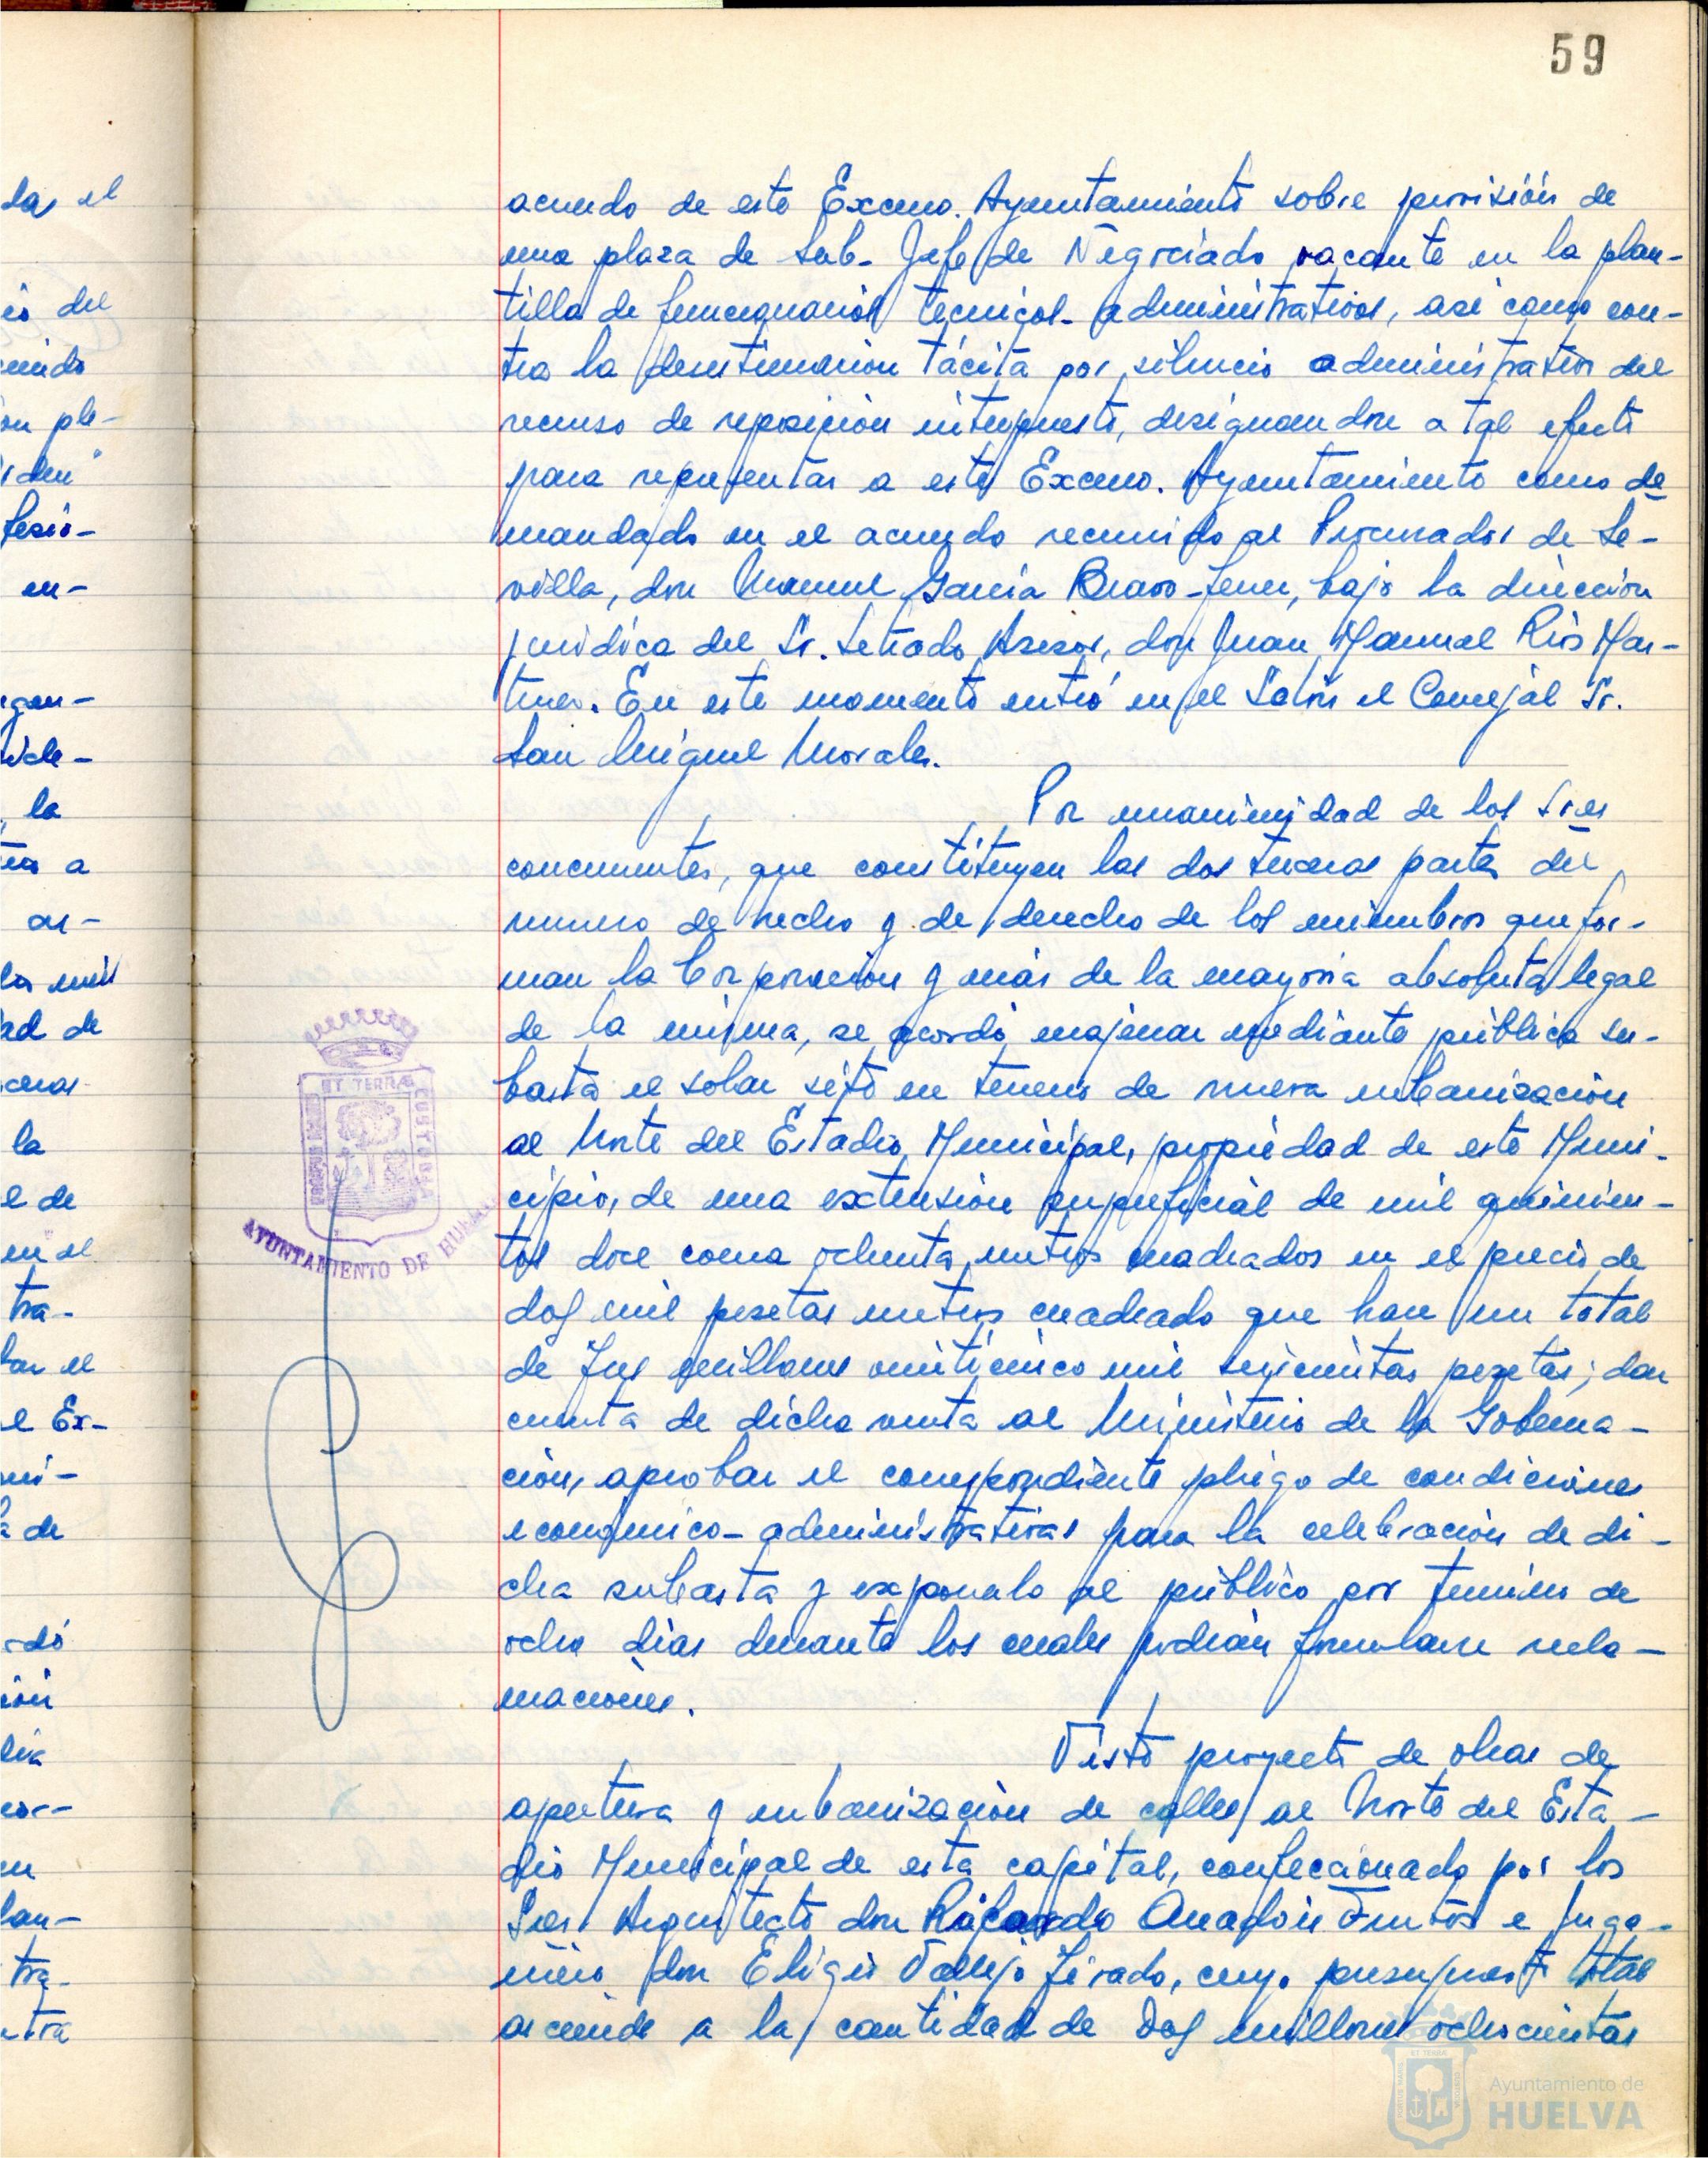 59
acuerdo de este Excmo. Ayuntamiento sobre provisión de
una plaza de Sub-Jefe de Negociado vacante en la plan-
tilla de funcionarios tecnicos-administrativos, asi como con-
tra la desestimación tácita por silencio administrativo del
recurso de reposición interpuesto, designandose a tal efecto
para representar a este Excmo. Ayuntamiento como de
mandado en el acuerdo recurrido al Procurador de Se-
villa, don Manuel García Bravo-Ferrer, bajo la dirección
juridica del Sr. Letrado Asesor, don Juan Manuel Ríos Mar-
tinez. En este momento entró en el Salón el Concejal Sr.
San Miguel Morales.
Por unanimidad de los Sres
concurrentes, que constituyen las dos terceras partes del
numero de hecho y de derecho de los miembros que for-
man la Corporación y más de la mayoria absoluta legal
de la misma, se acordó enajenar mediante pública su-
basta el solar sito en terrenos de nueva urbanización
al Norte del Estadio Municipal, propiedad de este Muni-
cipio, de una extensión superficial de mil quinien-
tos doce coma ochenta metros cuadrados en el precio de
dos mil pesetas metros cuadrado que hace un total
de tres millones veinticinco mil seiscientas pesetas; dar
cuenta de dicha venta al Ministerio de la Goberna-
ción, aprobar el correspondiente pliego de condiciones
economico-administrativas para la celebración de di-
cha subasta y exponerlo al público por termino de
ocho dias durante los cuales podrán formularse recla-
maciones.
Visto proyecto de obras de
apertura y urbanización de calles al Norte del Esta-
dio Municipal de esta capital, confeccionado por los
Sres. Arquitecto don Ricardo Anadón Frutos e Inge-
niero don Eligio Vallejo Tirado, cuyo presupuesto total
asciende a la cantidad de dos millones ochocientas
ET TERRÆ
CUSTODIA
AYUNTAMIENTO DE HUELVA
Ayuntamiento de
HUELVA